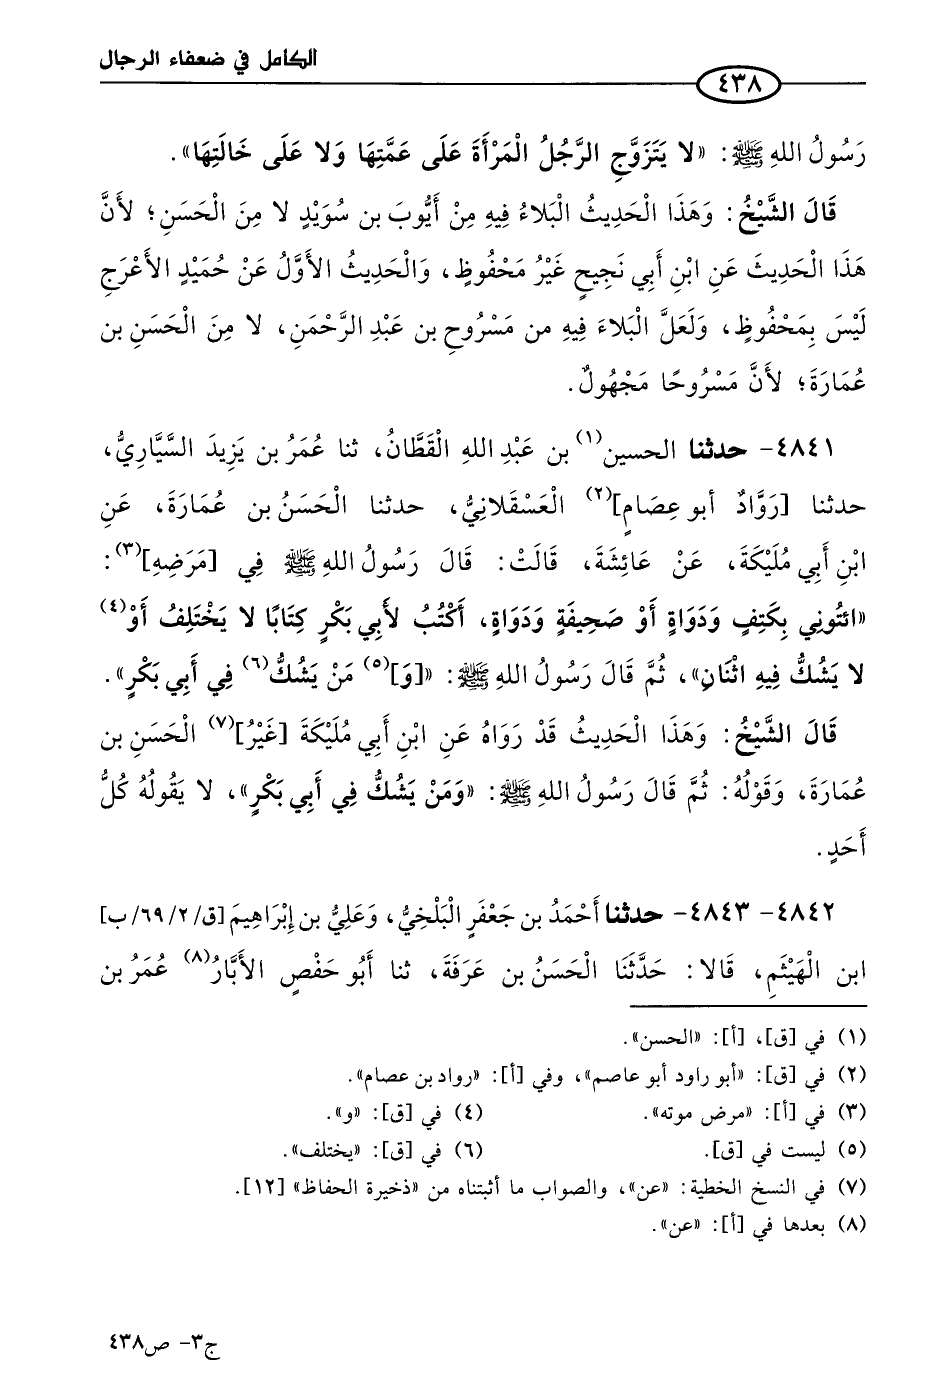 الكامل في ضعفاء الرجال
٤٣٨
رَسُولُ اللهِ ﷺ: «لا يَتَزَوَّجِ الرَّجُلُ الْمَرْأَةَ عَلَى عَمَّتِهَا وَلا عَلَى خَالَتِهَا».
قَالَ الشَّيْخُ: وَهَذَا الْحَدِيثُ الْبَلاءُ فِيهِ مِنْ أَيُّوبَ بن سُوَيْدٍ لا مِنَ الْحَسَنِ؛ لأَنَّ
هَذَا الْحَدِيثَ عَنِ ابْنِ أَبِي نَجِيحٍ غَيْرُ مَحْفُوظٍ، وَالْحَدِيثُ الأَوَّلُ عَنْ حُمَيْدٍ الأَعْرَجِ
لَيْسَ بِمَحْفُوظٍ، وَلَعَلَّ الْبَلاءَ فِيهِ من مَسْرُوحِ بن عَبْدِ الرَّحْمَنِ، لا مِنَ الْحَسَنِ بن
عُمَارَةَ؛ لأَنَّ مَسْرُوحًا مَجْهُولٌ.
٤٨٤١- حدثنا الحسين(١) بن عَبْدِ اللهِ الْقَطَّانُ، ثنا عُمَرُ بن يَزِيدَ السَّيَّارِيُّ،
حدثنا [رَوَّادٌ أبو عِصَامٍ](٢) الْعَسْقَلانِيُّ، حدثنا الْحَسَنُ بن عُمَارَةَ، عَنِ
ابْنِ أَبِي مُلَيْكَةَ، عَنْ عَائِشَةَ، قَالَتْ: قَالَ رَسُولُ اللهِ ﷺ فِي [مَرَضِهِ](٣):
«ائتُونِي بِكَتِفٍ وَدَوَاةٍ أَوْ صَحِيفَةٍ وَدَوَاةٍ، أَكْتُبُ لأَبِي بَكْرٍ كِتَابًا لا يَخْتَلِفُ أَوْ(٤)
لا يَشُكُّ فِيهِ اثْنَانِ»، ثُمَّ قَالَ رَسُولُ اللهِ ﷺ: «[وَ](٥) مَنْ يَشُكُّ(٦) فِي أَبِي بَكْرٍ».
قَالَ الشَّيْخُ: وَهَذَا الْحَدِيثُ قَدْ رَوَاهُ عَنِ ابْنِ أَبِي مُلَيْكَةَ [غَيْرُ](٧) الْحَسَنِ بن
عُمَارَةَ، وَقَوْلُهُ: ثُمَّ قَالَ رَسُولُ اللهِ ﷺ: «وَمَنْ يَشُكُّ فِي أَبِي بَكْرٍ»، لا يَقُولُهُ كُلُّ
أَحَدٍ.
٤٨٤٢- ٤٨٤٣- حدثنا أَحْمَدُ بن جَعْفَرٍ الْبَلْخِيُّ، وَعَلِيُّ بن إِبْرَاهِيمَ [ق/٦٩/٢/ب]
ابن الْهَيْثَمِ، قَالا: حَدَّثَنَا الْحَسَنُ بن عَرَفَةَ، ثنا أَبُو حَفْصٍ الأَبَّارُ(٨) عُمَرُ بن
(١) في [ق]، [أ]: «الحسن».
(٢) في [ق]: «أبو راود أبو عاصم»، وفي [أ]: «رواد بن عصام».
(٣) في [أ]: «مرض موته». (٤) في [ق]: «و».
(٥) ليست في [ق]. (٦) في [ق]: «يختلف».
(٧) في النسخ الخطية: «عن»، والصواب ما أثبتناه من «ذخيرة الحفاظ» [١٢].
(٨) بعدها في [أ]: «عن».
ج٣- ص٤٣٨